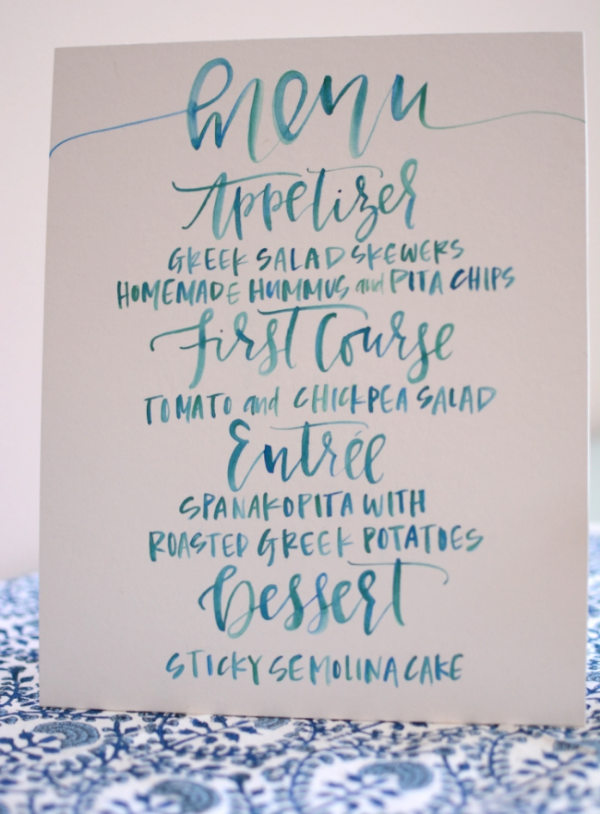 menu
Appetizer
GREEK SALAD SKEWERS
HOMEMADE HUMMUS and PITA CHIPS
First Course
TOMATO and CHICKPEA SALAD
Entrée
SPANAKOPITA WITH
ROASTED GREEK POTATOES
Dessert
STICKY SEMOLINA CAKE